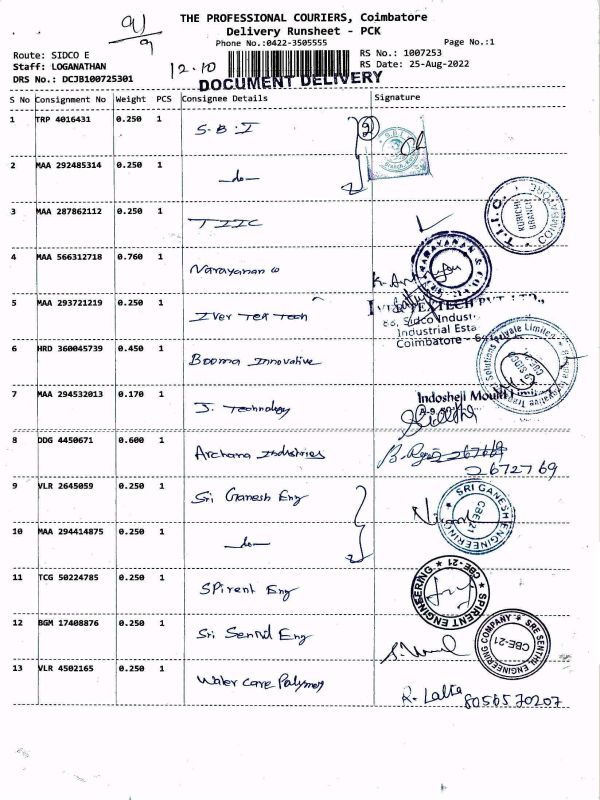 9/9
THE PROFESSIONAL COURIERS, Coimbatore
Delivery Runsheet - PCK
Phone No.:0422-3505555 Page No.:1
Route: SIDCO E RS No.: 1007253
Staff: LOGANATHAN 12.10 RS Date: 25-Aug-2022
DRS No.: DCJB100725301 DOCUMENT DELIVERY
S No Consignment No Weight PCS Consignee Details Signature
1 TRP 4016431 0.250 1 S.B.I
2 MAA 292485314 0.250 1 -do-
3 MAA 287862112 0.250 1 TIIC T.I.I.C. KURICHI BRANCH COIMBATORE
4 MAA 566312718 0.760 1 Narayanan NARAYANAN & CO
5 MAA 293721219 0.250 1 Iver Tex Tech TEXTECH PVT LTD.,
Sidco Industrial Esta
Coimbatore -
6 HRD 360045739 0.450 1 Booma Innovative Solutions Private Limited
7 MAA 294532013 0.170 1 J. Technology Indoshell Mould Limited
8 DDG 4450671 0.600 1 Archana Industries
2672769
9 VLR 2645059 0.250 1 Sri Ganesh Eng SRI GANESH ENGINEERING CBE-21
10 MAA 294414875 0.250 1 -do-
11 TCG 50224785 0.250 1 Spirent Eng SPIRENT ENGINEERING CBE-21
12 BGM 17408876 0.250 1 Sri Senthil Eng SRE SENTHIL ENGINEERING COMPANY CBE-21
13 VLR 4502165 0.250 1 Water care Polymers R. Latha 8056570207